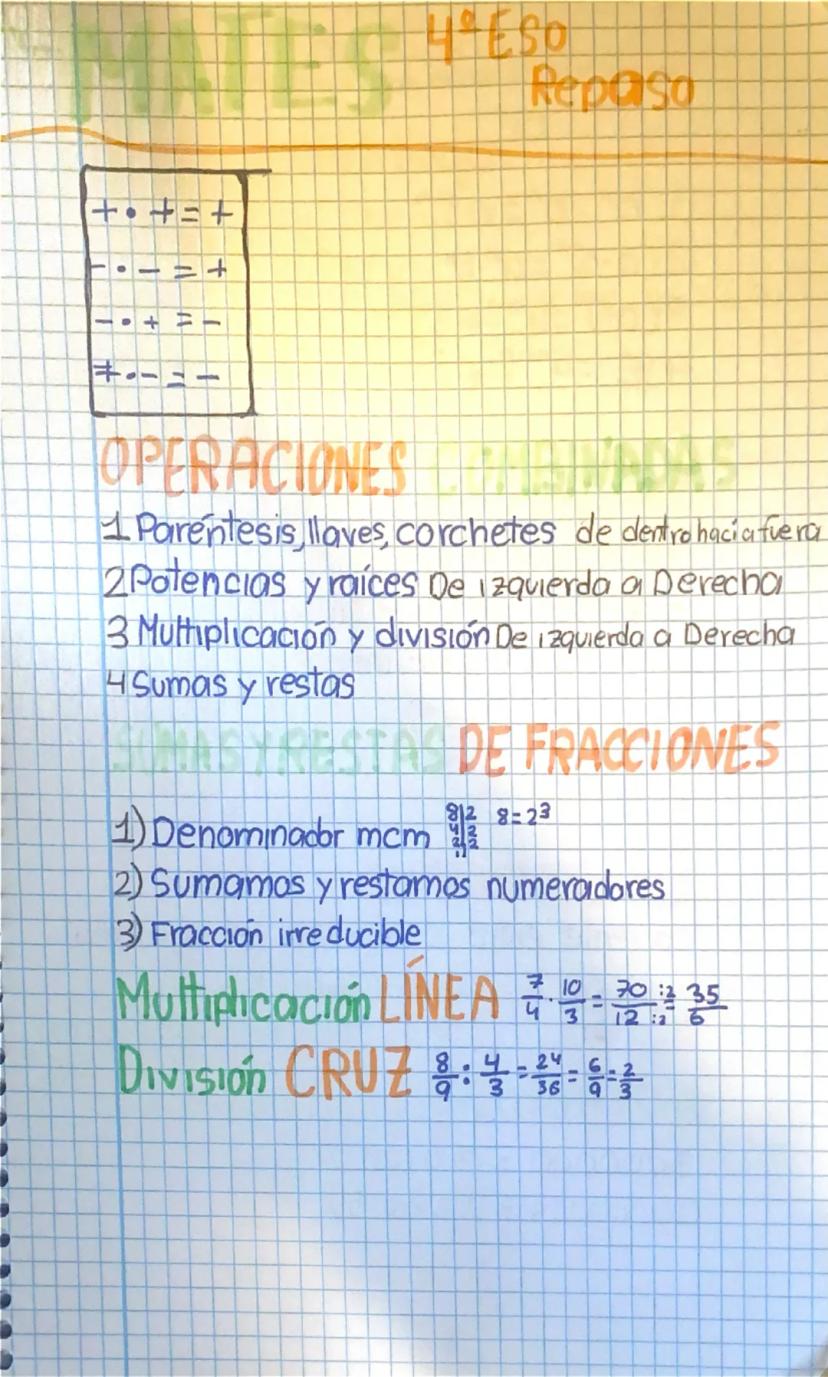 MATES 4º ESO
Repaso
+ · + = +
- · - = +
- · + = -
+ · - = -
OPERACIONES COMBINADAS
1 Paréntesis, llaves, corchetes de dentro hacia fuera
2 Potencias y raíces De izquierda a Derecha
3 Multiplicación y división De izquierda a Derecha
4 Sumas y restas
SUMAS Y RESTAS DE FRACCIONES
1) Denominador mcm 8|2 4|2 2|2 1| 8=2³
2) Sumamos y restamos numeradores
3) Fracción irreducible
Multiplicación LÍNEA 7/4 · 10/3 = 70/12 :2/:2 = 35/6
División CRUZ 8/9 : 4/3 = 24/36 = 6/9 = 2/3